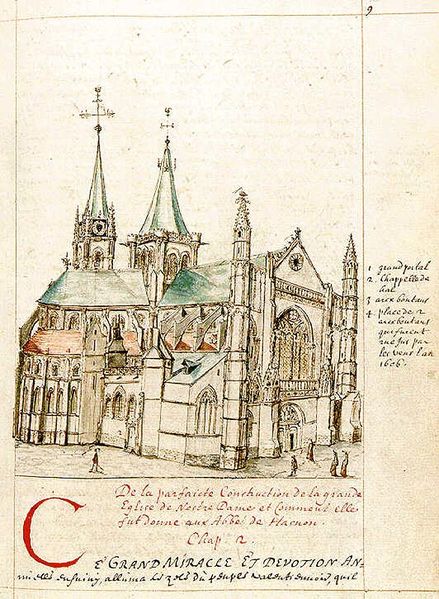 9
1 grand portal
2 Chappelle de
hal
3 arcx boutans
4 place de 2
arcx boutans
qui furent
rue jus par
les vent l'an
De la parfaicte Construction de la grande
Eglise de Nostre Dame et Comment elle
fut donne aux Abbez de Hasnon.
Chap. 2.
CE GRAND MIRACLE ET DEVOTION AN-
alluma les du peuple Valentiennois, quil